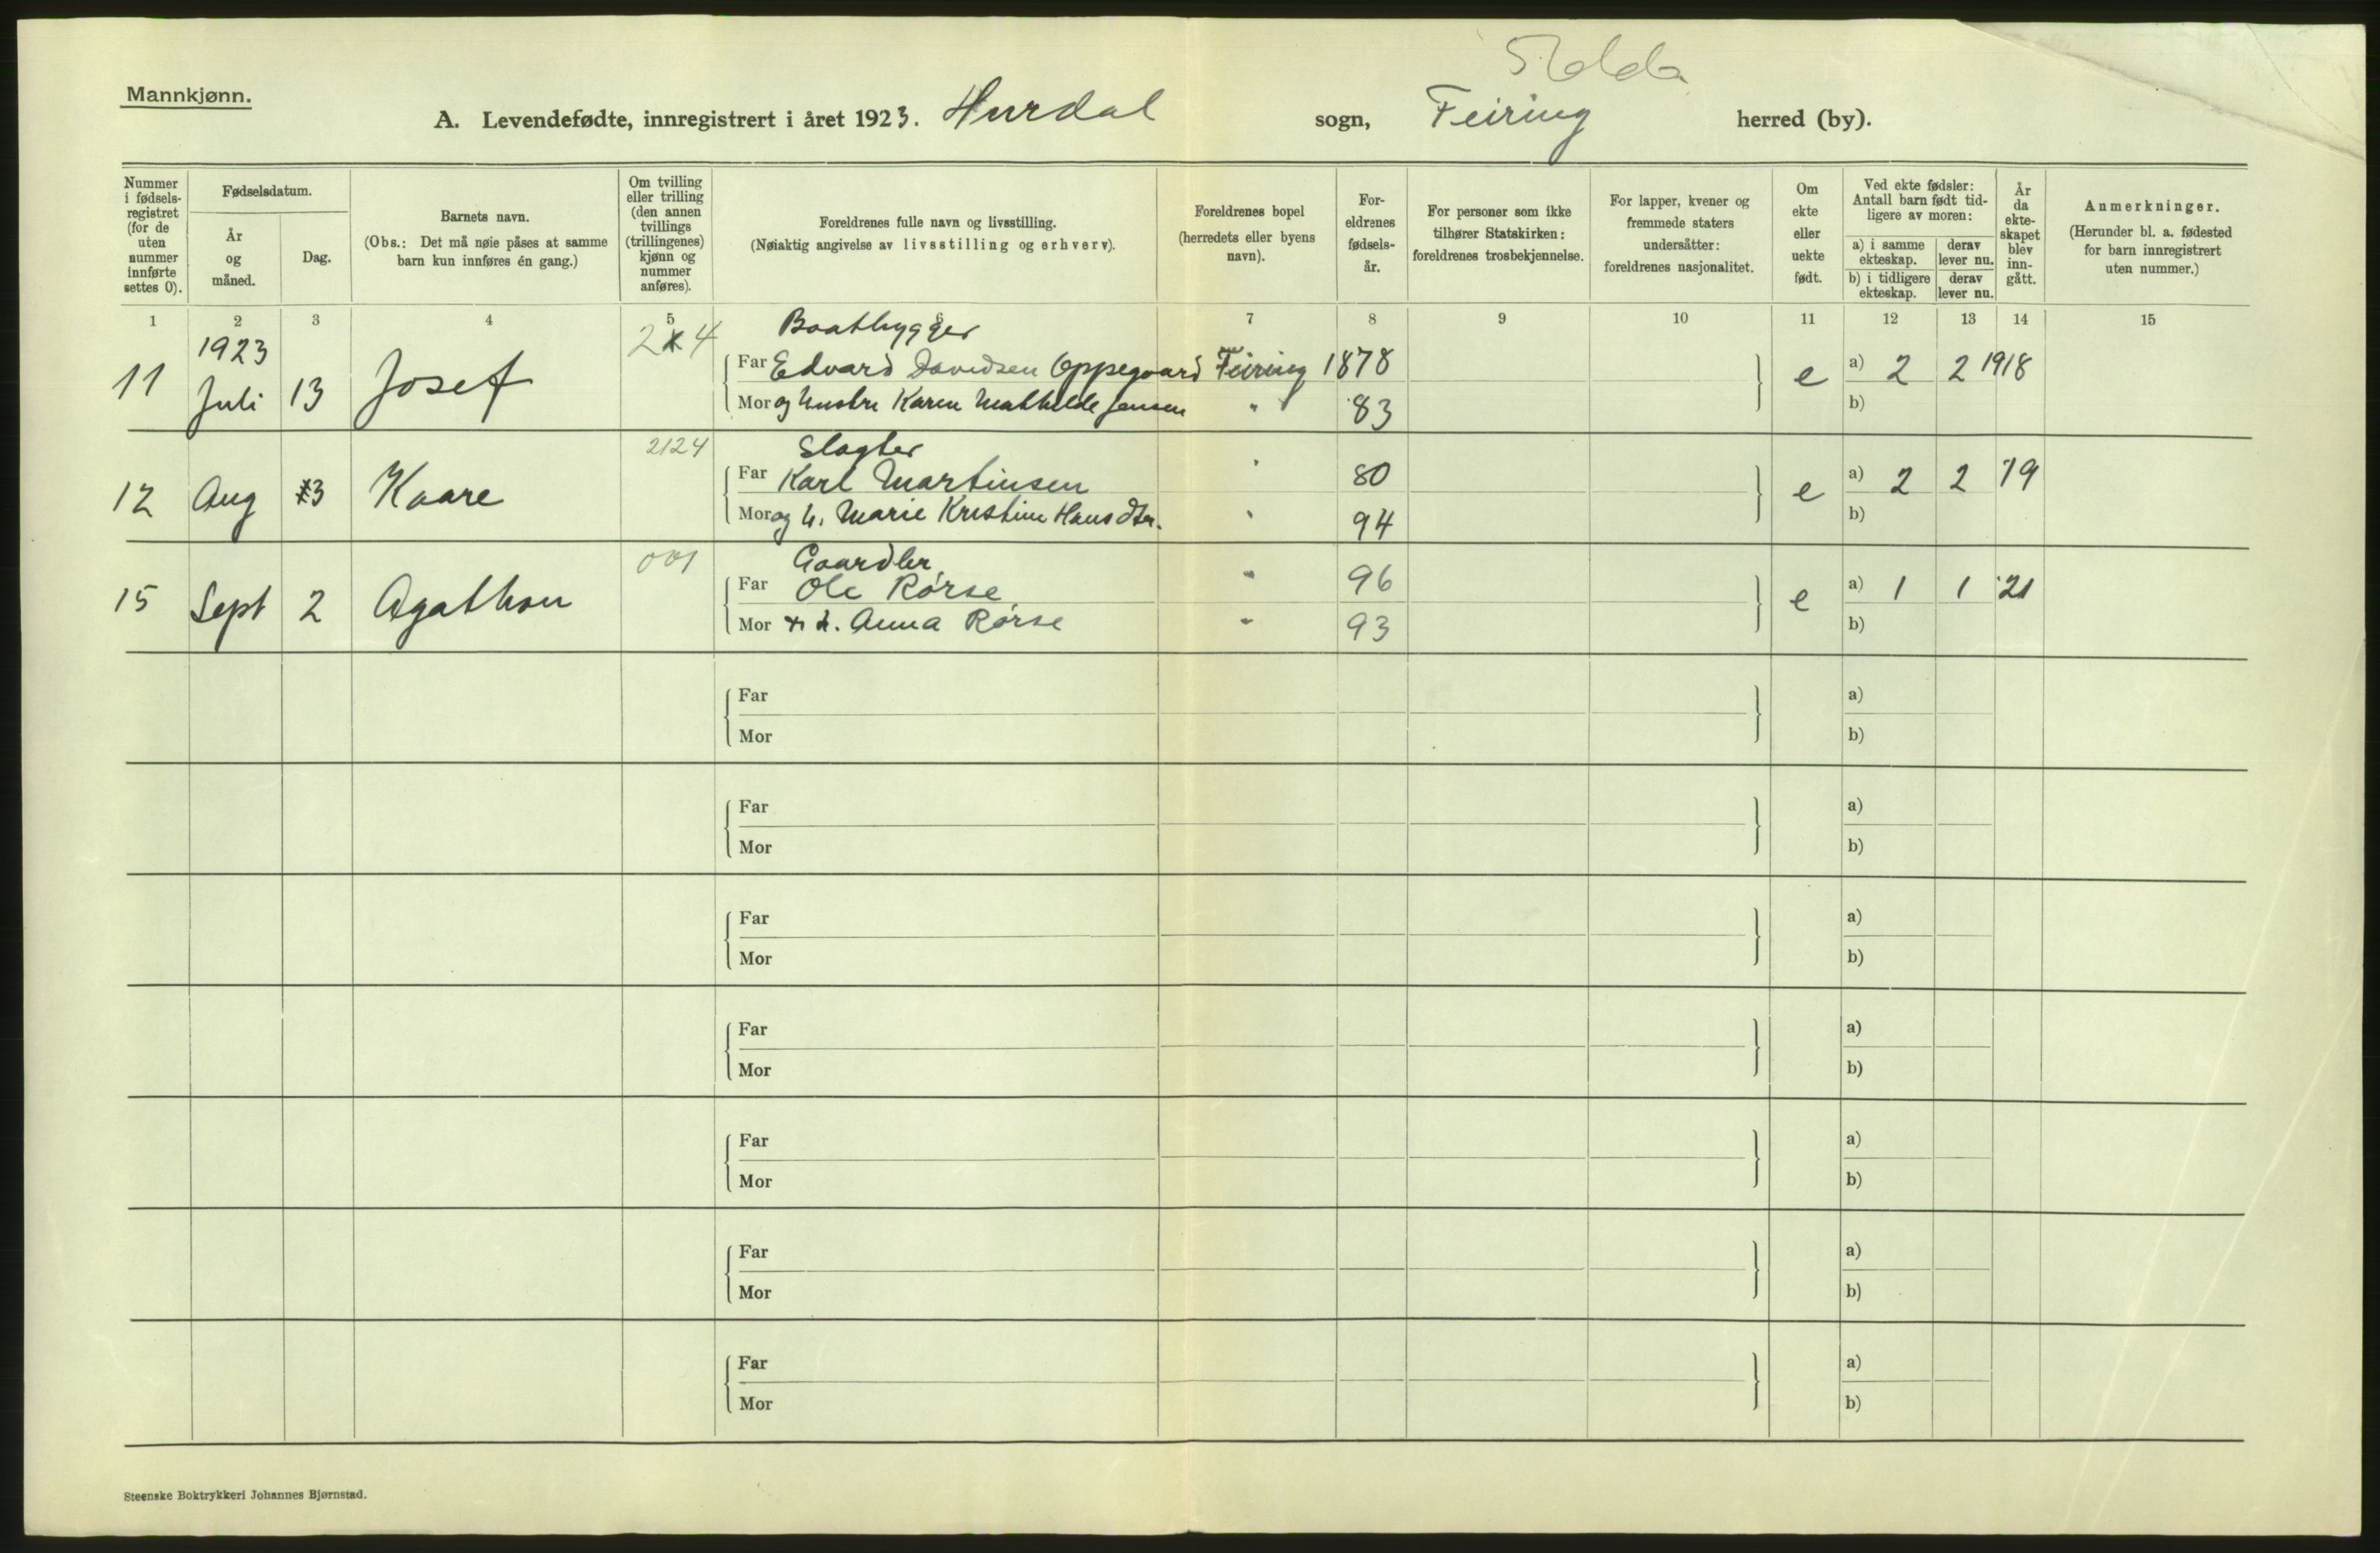 Mannkjønn.
A. Levendefødte, innregistrert i året 1923. Hurdal sogn, Feiring herred (by).
Nummer i fødsels-registret (for de uten nummer innførte settes 0).
Fødselsdatum.
År og måned.
Dag.
Barnets navn.
(Obs.: Det må nøie påses at samme barn kun innføres én gang.)
Om tvilling eller trilling (den annen tvillings (trillingenes) kjønn og nummer anføres).
Foreldrenes fulle navn og livsstilling.
(Nøiaktig angivelse av livsstilling og erhverv).
Foreldrenes bopel (herredets eller byens navn).
For-eldrenes fødsels-år.
For personer som ikke tilhører Statskirken: foreldrenes trosbekjennelse.
For lapper, kvener og fremmede staters undersåtter: foreldrenes nasjonalitet.
Om ekte eller uekte født.
Ved ekte fødsler: Antall barn født tid-ligere av moren:
a) i samme ekteskap.
derav lever nu.
b) i tidligere ekteskap.
derav lever nu.
År da ekte-skapet blev inn-gått.
Anmerkninger.
(Herunder bl. a. fødested for barn innregistrert uten nummer.)
1 2 3 4 5 6 7 8 9 10 11 12 13 14 15
1923 Baatbygger
11 Juli 13 Josef Far Edvard Davidsen Oppegaard Feiring 1878 e a) 2 2 1918
Mor og hustru Karen Mathilde Jensen " 83 b)
2124 Slagter
12 Aug 3 Kaare Far Karl Martinsen " 80 e a) 2 2 19
Mor og h. Marie Kristine Hansdtr. " 94 b)
001 Gaardbr
15 Sept 2 Agathon Far Ole Rørse " 96 e a) 1 1 21
Mor h. Anna Rørse " 93 b)
Far a)
Mor b)
Far a)
Mor b)
Far a)
Mor b)
Far a)
Mor b)
Far a)
Mor b)
Far a)
Mor b)
Far a)
Mor b)
Steenske Boktrykkeri Johannes Bjørnstad.